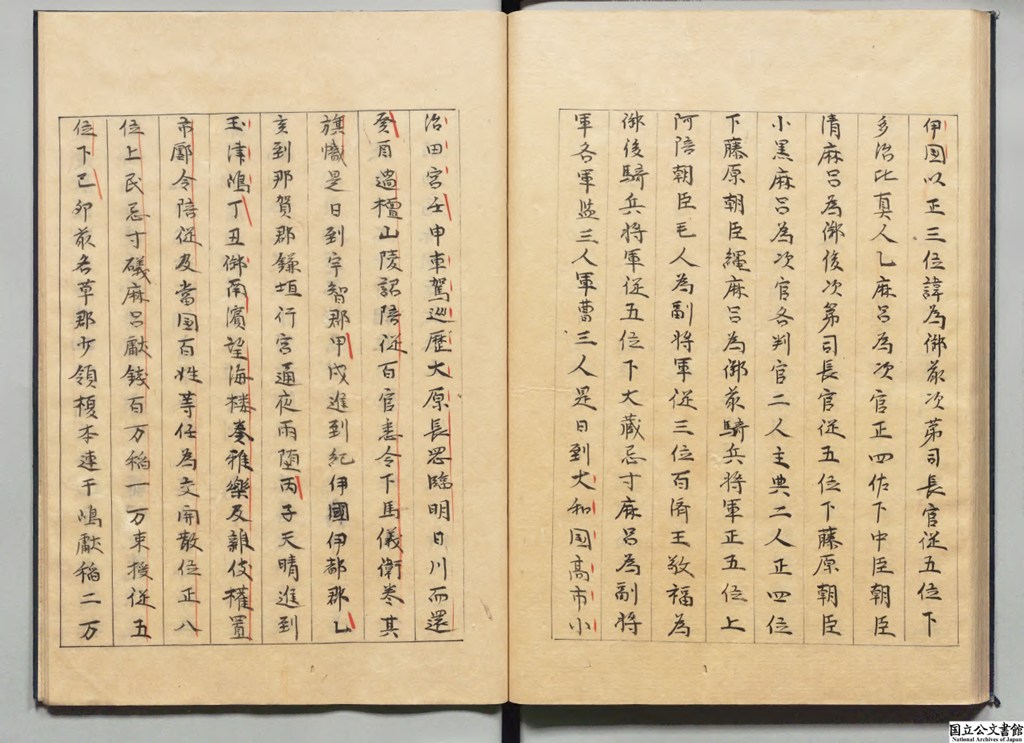 伊国以正三位諱為御前次第司長官従五位下
多治比真人乙麻呂為次官正四位下中臣朝臣
清麻呂為御後次第司長官従五位下藤原朝臣
小黒麻呂為次官各判官二人主典二人正四位
下藤原朝臣縄麻呂為御前騎兵将軍正五位上
阿陪朝臣毛人為副将軍従三位百済王敬福為
御後騎兵将軍従五位下大蔵忌寸麻呂為副将
軍各軍監三人軍曹三人是日到大和国高市小
治田宮壬申車駕巡歴大原長岡臨明日川而還
癸酉過檀山陵詔陪従百官悉令下馬儀衛巻其
旗幟是日到宇智郡甲戌進到紀伊國伊都郡乙
亥到那賀郡鎌垣行宮通夜雨堕丙子天晴進到
玉津嶋丁丑御南濱望海楼奏雅樂及雜伎権置
市廛令陪従及當国百姓等任為交関散位正八
位上民忌寸礒麻呂獻銭百万稲一万束授従五
位下己卯前名草郡少領榎本連千嶋獻稲二万
国立公文書館
National Archives of Japan